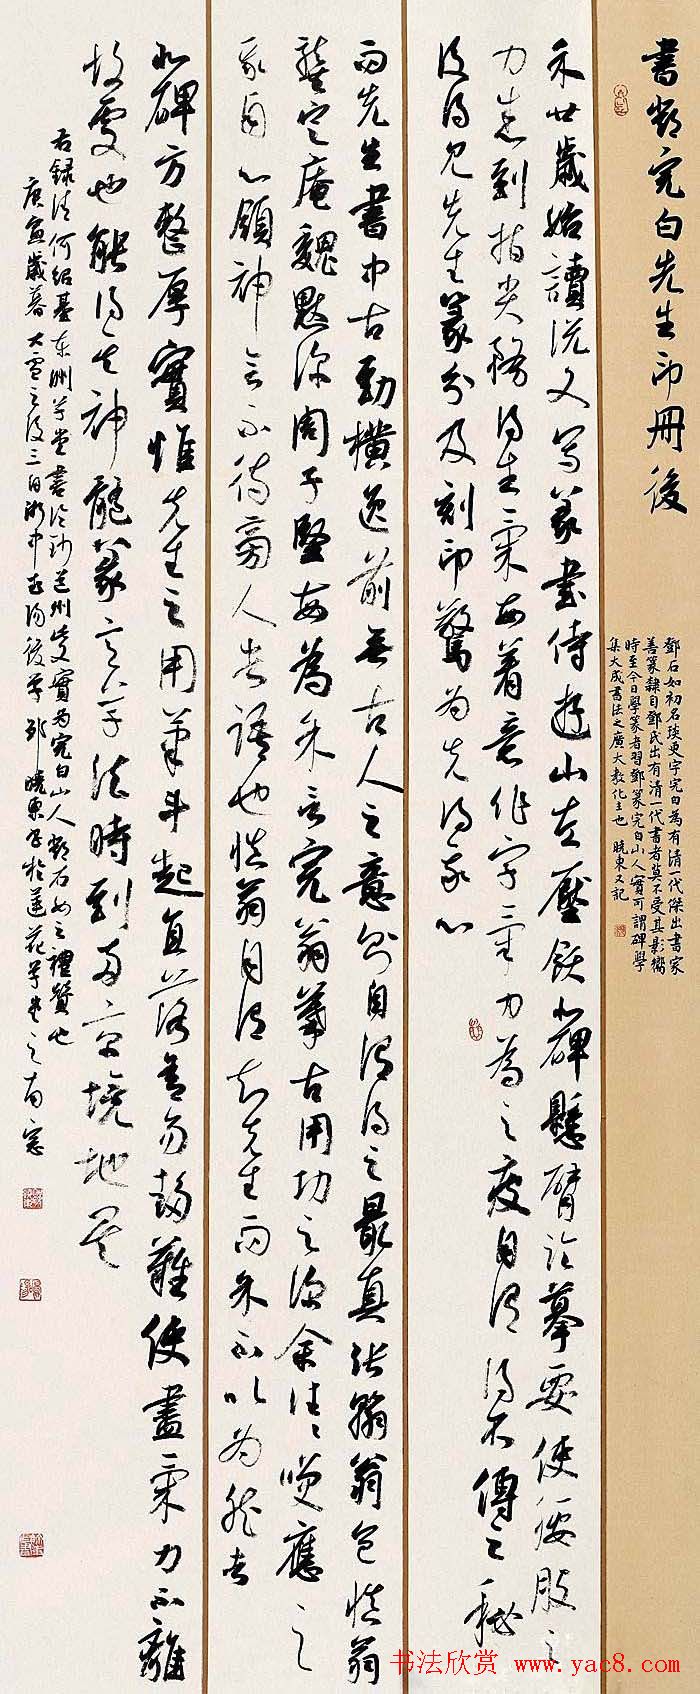 書鄧完白先生印冊後
鄧石如初名琰更字完白為有清一代傑出書家
善篆隸自鄧氏出有清一代書者莫不受其影響
時至今日學篆者習鄧篆完白山人實可謂碑學
集大成書法之廣大教化主也 曉東又記
余廿歲始讀說文寫篆書侍遊山左壓飫北碑懸臂臨摹要使腰股之
力悉到指尖務得生氣每著意作字氣力為之疲自謂得不傳之秘
後得見先生篆分及刻印驚為先得我心
而先生書中古勁橫逸前無古人之意則自謂得之最真張翰翁包慎翁
龔定庵魏默深周子堅每為余言完翁摹古用功之深余往往嘆應之
我自心領神會不待旁人告語也慎翁自謂知先生而余不以為然者
北碑方整厚實惟先生之用筆斗起直落舍易趨難使盡氣力不離
故處也能得其神龍篆言八字法時到兩京境地矣
右錄清何紹基東洲草堂書論 道州此文實為完白山人鄧石如之禮贊也
庚寅歲暮大雪之後三日浙中 後學邵曉東書於蓮花草堂之南窗
书法欣赏 www.yac8.com